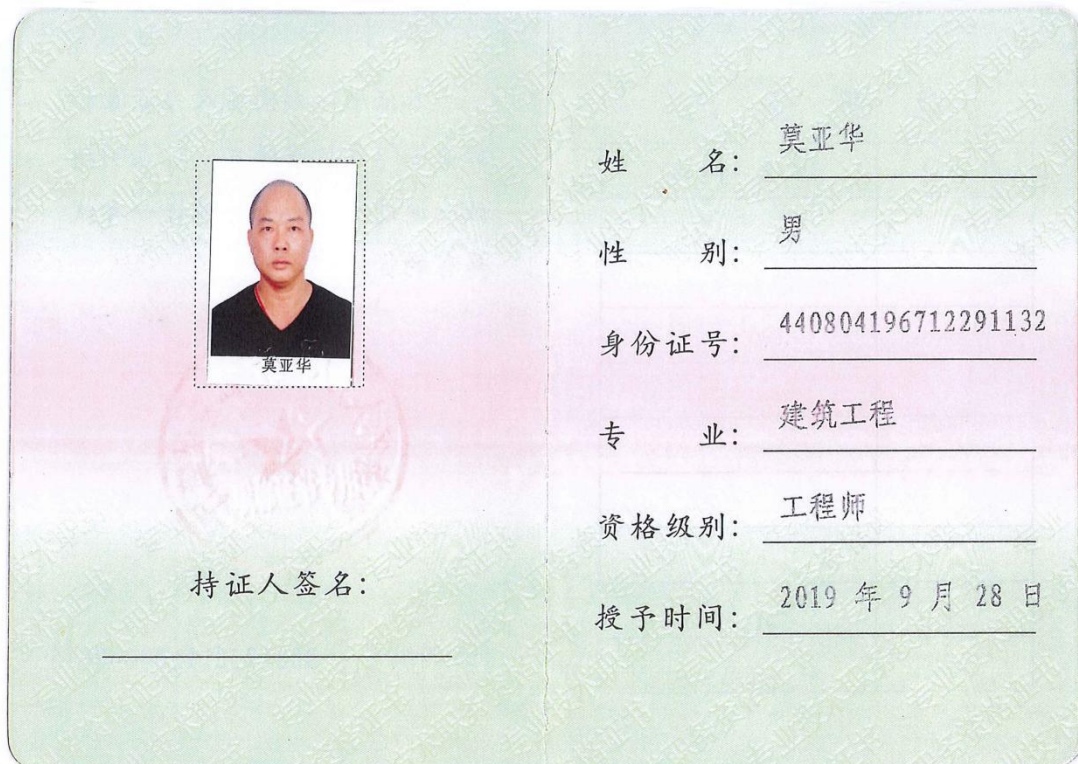 莫亚华
持证人签名:
姓 名: 莫亚华
性 别: 男
身份证号: 440804196712291132
专 业: 建筑工程
资格级别: 工程师
授予时间: 2019 年 9 月 28 日